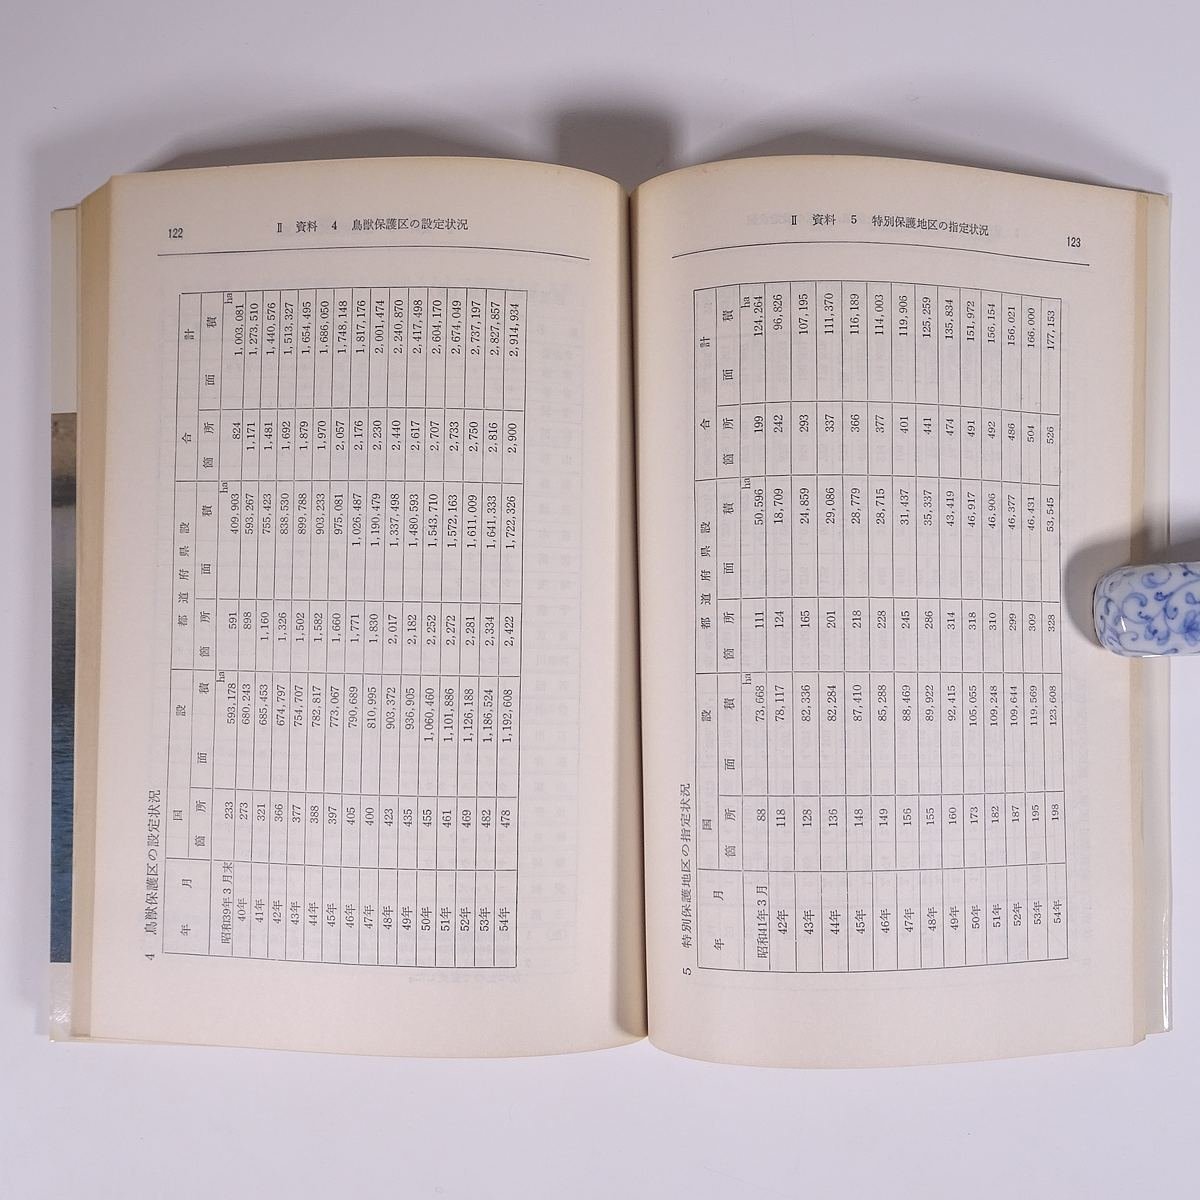 122
Ⅱ 資料 4 鳥獣保護区の設定状況
4 鳥獣保護区の設定状況
年 月 国 設 都 道 府 県 設 合 計
箇 所 面 積 箇 所 面 積 箇 所 面 積
ha ha ha
昭和39年3月末 233 593,178 591 409,903 824 1,003,081
40年 273 680,243 898 593,267 1,171 1,273,510
41年 321 685,453 1,160 755,423 1,481 1,440,576
42年 366 674,797 1,326 838,530 1,692 1,513,327
43年 377 754,707 1,502 899,788 1,879 1,654,495
44年 388 782,817 1,582 903,233 1,970 1,686,050
45年 397 773,067 1,660 975,081 2,057 1,748,148
46年 405 790,689 1,771 1,026,487 2,176 1,817,176
47年 400 810,995 1,830 1,190,479 2,230 2,001,474
48年 423 903,372 2,017 1,337,498 2,440 2,240,870
49年 435 936,905 2,182 1,480,593 2,617 2,417,498
50年 455 1,060,460 2,252 1,543,710 2,707 2,604,170
51年 461 1,101,886 2,272 1,572,163 2,733 2,674,049
52年 469 1,126,188 2,281 1,611,009 2,750 2,737,197
53年 482 1,186,524 2,334 1,641,333 2,816 2,827,857
54年 478 1,192,608 2,422 1,722,326 2,900 2,914,934
Ⅱ 資料 5 特別保護地区の指定状況
123
5 特別保護地区の指定状況
年 月 国 設 都 道 府 県 設 合 計
箇 所 面 積 箇 所 面 積 箇 所 面 積
ha ha ha
昭和41年3月 88 73,668 111 50,596 199 124,264
42年 118 78,117 124 18,709 242 96,826
43年 128 82,336 165 24,859 293 107,195
44年 136 82,284 201 29,086 337 111,370
45年 148 87,410 218 28,779 366 116,189
46年 149 85,288 228 28,715 377 114,003
47年 156 88,469 245 31,437 401 119,906
48年 155 89,922 286 35,337 441 125,259
49年 160 92,415 314 43,419 474 135,834
50年 173 105,055 318 46,917 491 151,972
51年 182 109,248 310 46,906 492 156,154
52年 187 109,644 299 46,377 486 156,021
53年 195 119,569 309 46,431 504 166,000
54年 198 123,608 328 53,545 526 177,153